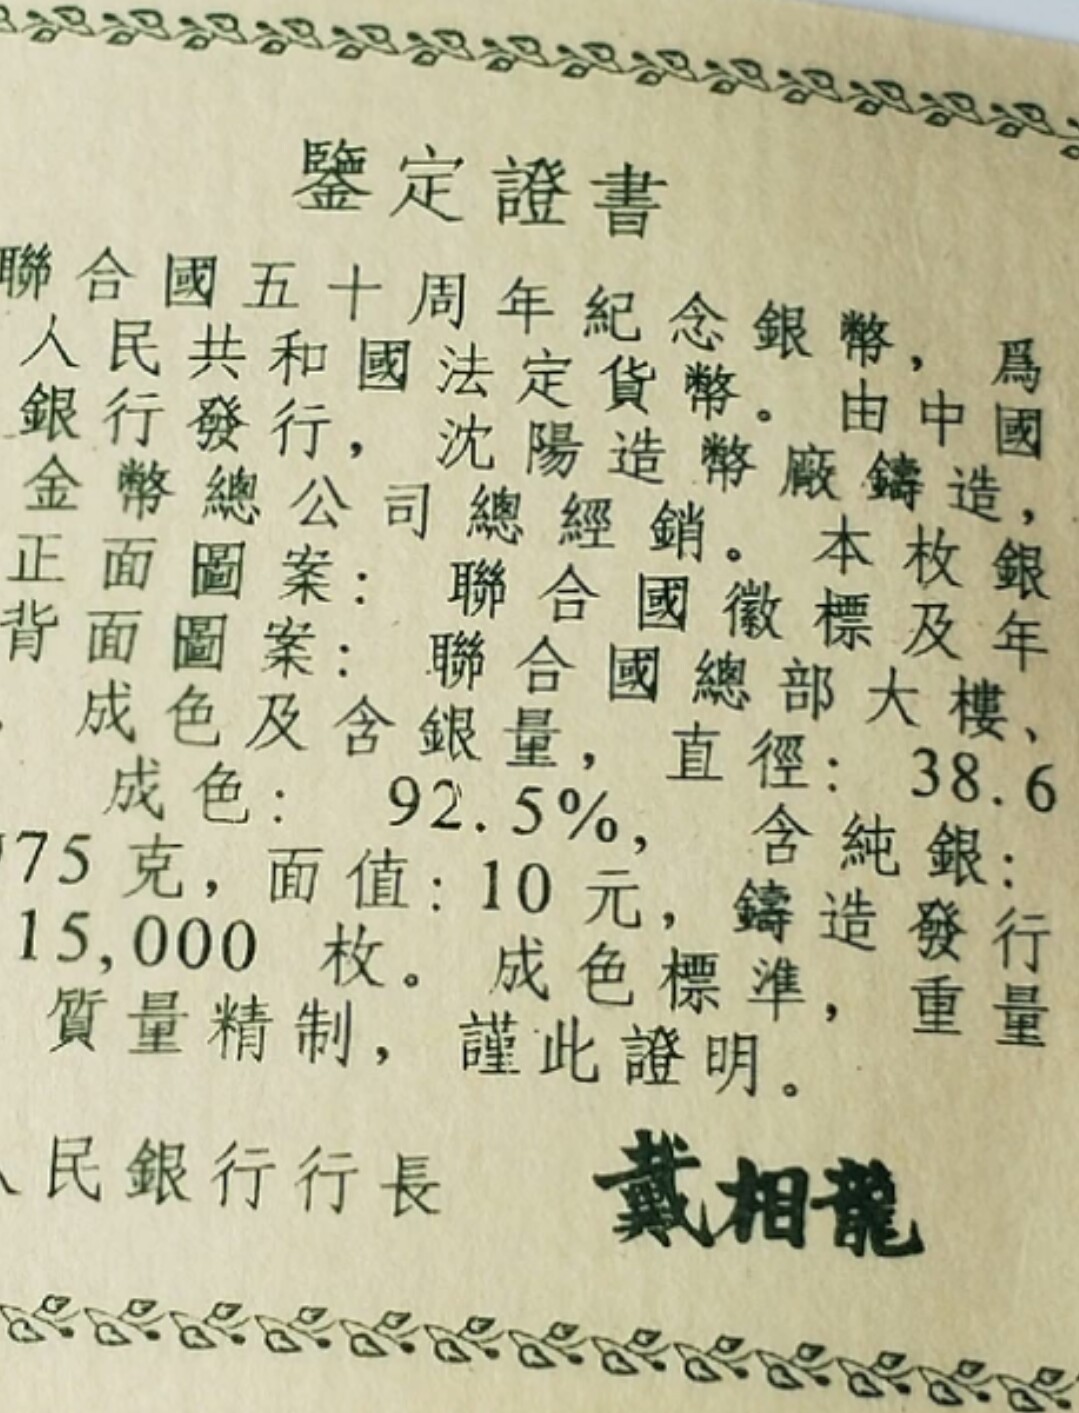 鑒定證書
聯合國五十周年紀念銀幣，爲
人民共和國法定貨幣。由中國
銀行發行，沈陽造幣廠鑄造，
金幣總公司總經銷。本枚銀
正面圖案：聯合國徽標及年
背面圖案：聯合國總部大樓、
成色及含銀量，直徑：38.6
成色：92.5%，含純銀：
75克，面值：10元，鑄造發行
15,000 枚。成色標準，重量
質量精制，謹此證明。
人民銀行行長 戴相龍